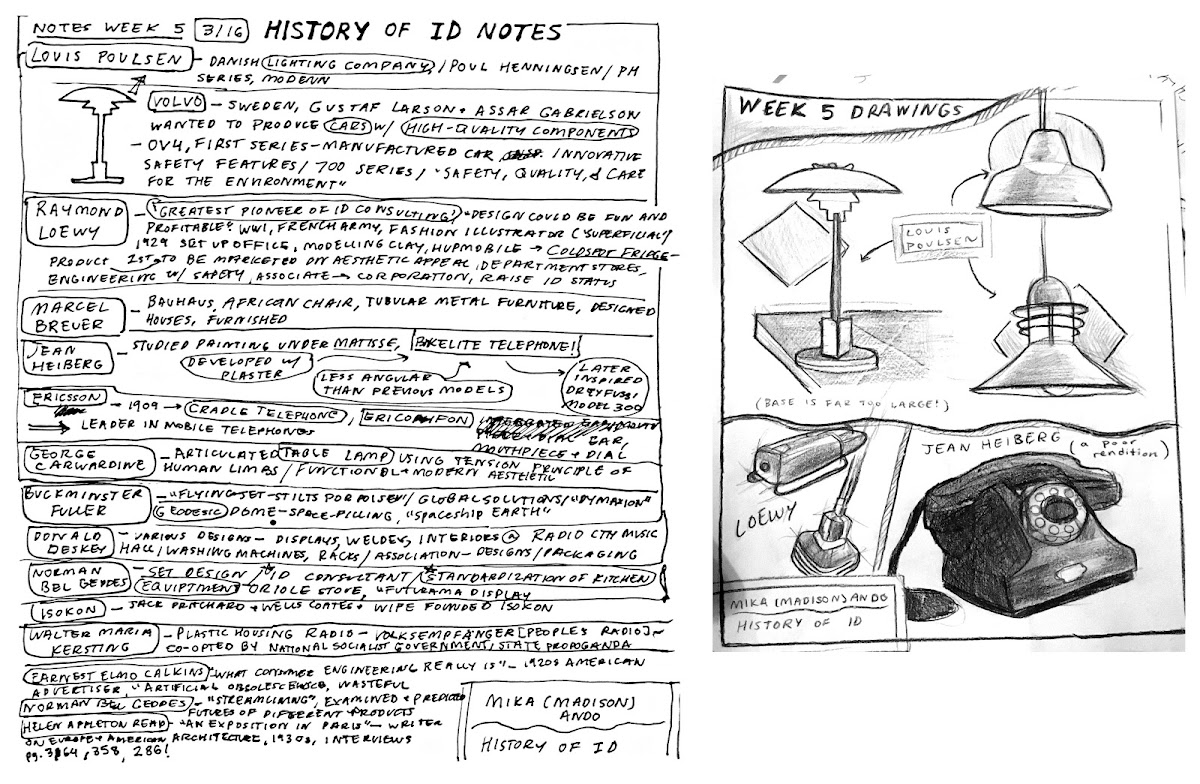 NOTES WEEK 5 3/16 HISTORY OF ID NOTES
LOUIS POULSEN - DANISH LIGHTING COMPANY, / POUL HENNINGSEN / PH
SERIES, MODENN
VOLVO - SWEDEN, GUSTAF LARSON + ASSAR GABRIELSON
WANTED TO PRODUCE CARS W/ HIGH-QUALITY COMPONENTS
- OV4, FIRST SERIES-MANUFACTURED CAR INNOVATIVE
SAFETY FEATURES / 700 SERIES / "SAFETY, QUALITY, & CARE
FOR THE ENVIRONMENT"
RAYMOND LOEWY - "GREATEST PIONEER OF ID CONSULTING!" "DESIGN COULD BE FUN AND
PROFITABLE" WWI FRENCH ARMY, FASHION ILLUSTRATOR ("SUPERFICIAL")
1929 SET UP OFFICE, MODELING CLAY, HUPMOBILE → COLDSPOT FRIDGE-
PRODUCT 1ST TO BE MARKETED ON AESTHETIC APPEAL, DEPARTMENT STORES,
ENGINEERING W/ SAFETY, ASSOCIATE → CORPORATION, RAISE ID STATUS
MARCEL BREUER - BAUHAUS, AFRICAN CHAIR, TUBULAR METAL FURNITURE, DESIGNED
HOUSES, FURNISHED
JEAN HEIBERG - STUDIED PAINTING UNDER MATISSE, BAKELITE TELEPHONE!
DEVELOPED W/ PLASTER
LESS ANGULAR THAN PREVIOUS MODELS
LATER INSPIRED DREYFUSS' MODEL 300
ERICSSON - 1909 → CRADLE TELEPHONE, ERICOFON
EAR,
MOUTHPIECE + DIAL
⇒ LEADER IN MOBILE TELEPHONES
GEORGE CARWARDINE - ARTICULATED TABLE LAMP USING TENSION PRINCIPLE OF
HUMAN LIMBS / FUNCTIONAL + MODERN AESTHETIC
BUCKMINSTER FULLER - "FLYING JET-STILTS PORPOISE" / GLOBAL SOLUTIONS / "DYMAXION"
GEODESIC DOME - SPACE-FILLING, "SPACESHIP EARTH"
DONALD DESKEY - VARIOUS DESIGNS - DISPLAYS, WELDEX, INTERIORS @ RADIO CITY MUSIC
HALL / WASHING MACHINES, RACKS / ASSOCIATION - DESIGNS / PACKAGING
NORMAN BEL GEDDES - SET DESIGN / ID CONSULTANT / STANDARDIZATION OF KITCHEN
EQUIPTMENT ORIOLE STOVE, "FUTURAMA DISPLAY
ISOKON - JACK PRITCHARD + WELLS COATES + WIFE FOUNDED ISOKON
WALTER MARIA KERSTING - PLASTIC HOUSING RADIO - VOLKSEMPFÄNGER [PEOPLE'S RADIO] ~
CO-OPTED BY NATIONAL SOCIALIST GOVERNMENT / STATE PROPOGANDA
EARNEST ELMO CALKINS "WHAT CONSUMER ENGINEERING REALLY IS" - 1920S AMERICAN
ADVERTISER, "ARTIFICIAL OBSOLESCENCE, WASTEFUL
NORMAN BEL GEDDES - "STREAMLINING", EXAMINED + PREDICTED
FUTURES OF DIFFERENT PRODUCTS
HELEN APPLETON READ - "AN EXPOSITION IN PARIS" - WRITER
ON EUROPE + AMERICAN ARCHITECTURE, 1930S, INTERVIEWS
pg. 3, 358, 286!
MIKA (MADISON)
ANDO
HISTORY OF ID
WEEK 5 DRAWINGS
LOUIS
POULSEN
(BASE IS FAR TOO LARGE!)
JEAN HEIBERG (a poor
rendition)
LOEWY
MIKA (MADISON) ANDO
HISTORY OF ID